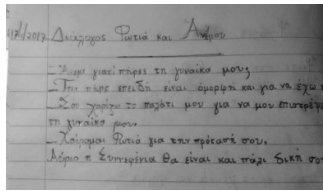 /2017 Διάλογος Φωτιά και Ανέμου
– Άνεμε γιατί πήρες τη γυναίκα μου;
– Την πήρα επειδή είναι όμορφη και για να έχω
– Σου χαρίζω το παλάτι μου για να μου επιστρέψ
τη γυναίκα μου.
– Χαίρομαι Φωτιά για την πρότασή σου.
Αύριο η Συννεφένια θα είναι και πάλι δική σου